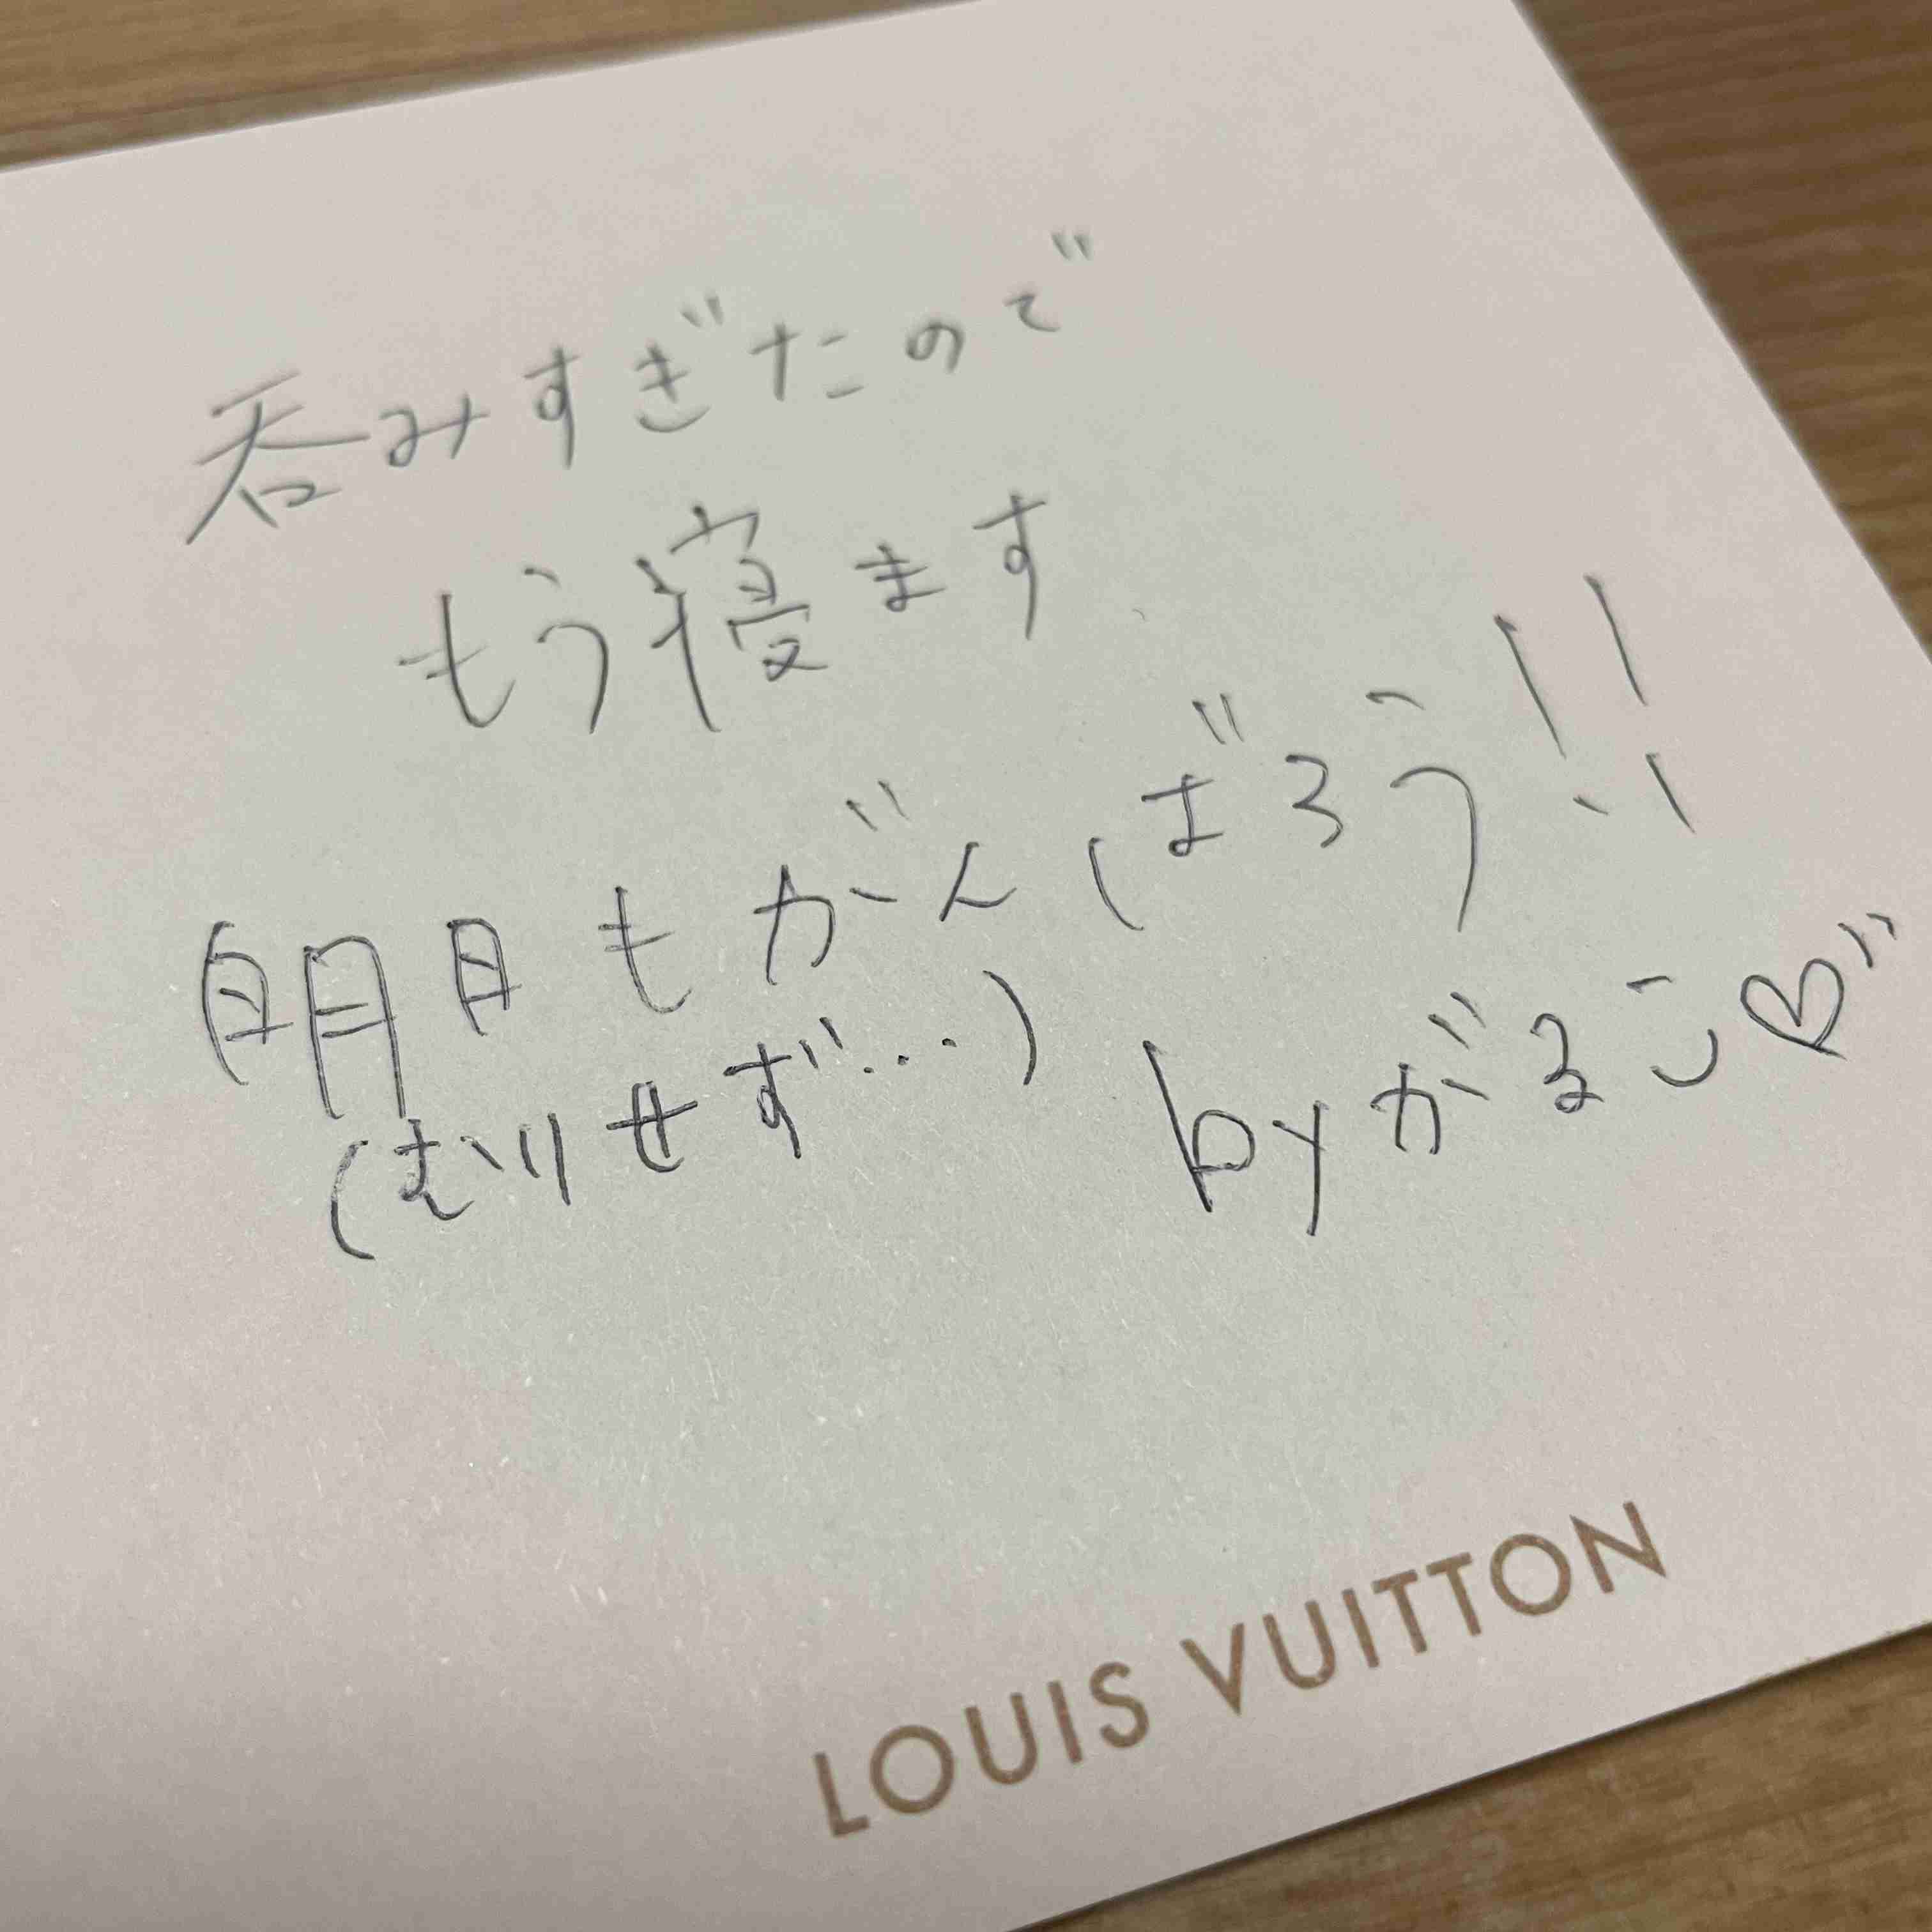 呑みすぎたので
もう寝ます
明日もがんばろう!!
(むりせず…)
byがるこ♡"
LOUIS VUITTON